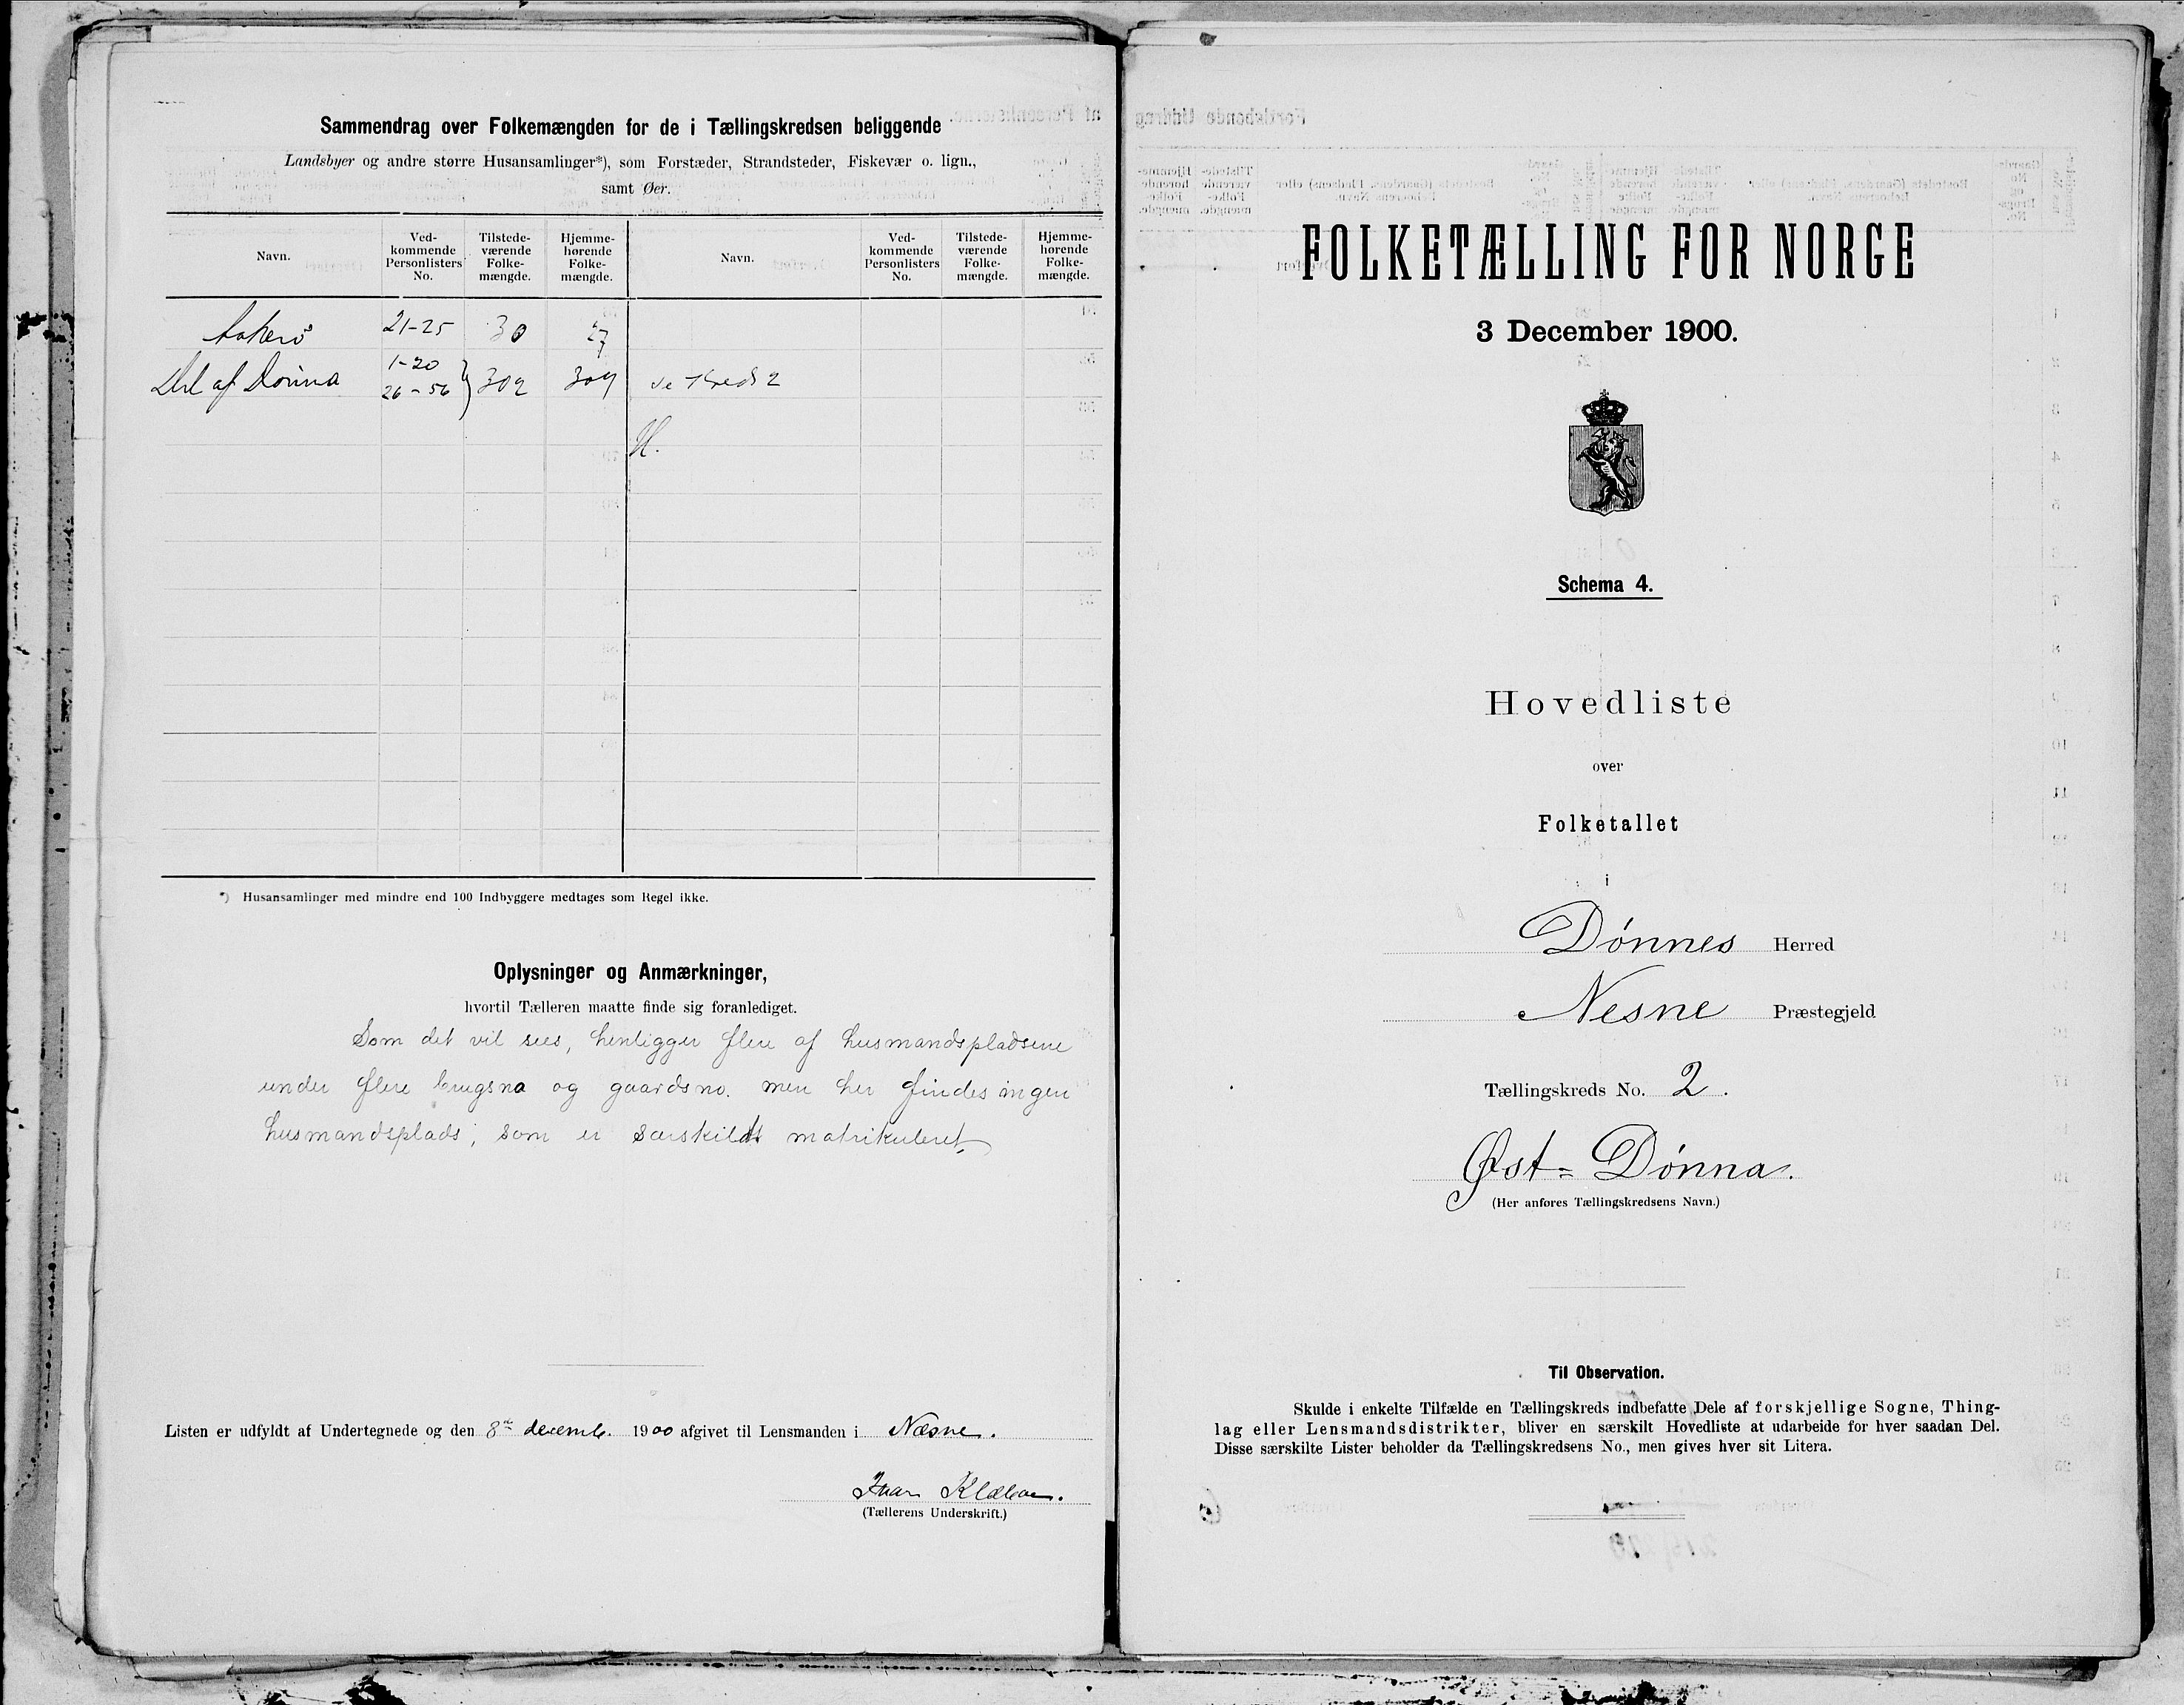 Sammendrag over Folkemængden for de i Tællingskredsen beliggende
Landsbyer og andre større Husansamlinger*), som Forstæder, Strandsteder, Fiskevær o. lign.,
samt Øer.
Navn. Ved-kommende Personlisters No. Tilstede-værende Folke-mængde. Hjemme-hørende Folke-mængde. Navn. Ved-kommende Personlisters No. Tilstede-værende Folke-mængde. Hjemme-hørende Folke-mængde.
Aakerø 21-25 30 27
Del af Dønna 1-20 26-56 } 302 304 se Kreds 2
H.
*) Husansamlinger med mindre end 100 Indbyggere medtages som Regel ikke.
Oplysninger og Anmærkninger,
hvortil Tælleren maatte finde sig foranlediget.
Som det vil sees, henligger flere af husmandspladsene
under flere brugsno og gaardsno. men her findes ingen
husmandsplads, som er særskildt matrikuleret.
Listen er udfyldt af Undertegnede og den 8de decemb. 1900 afgivet til Lensmanden i Næsne.
Ivar
(Tællerens Underskrift.)
FOLKETÆLLING FOR NORGE
3 December 1900.
Schema 4.
Hovedliste
over
Folketallet
i
Dønnes Herred
Nesne Præstegjeld
Tællingskreds No. 2.
Øst-Dønna.
(Her anføres Tællingskredsens Navn.)
Til Observation.
Skulde i enkelte Tilfælde en Tællingskreds indbefatte Dele af forskjellige Sogne, Thing-
lag eller Lensmandsdistrikter, bliver en særskilt Hovedliste at udarbeide for hver saadan Del.
Disse særskilte Lister beholder da Tællingskredsens No., men gives hver sit Litera.